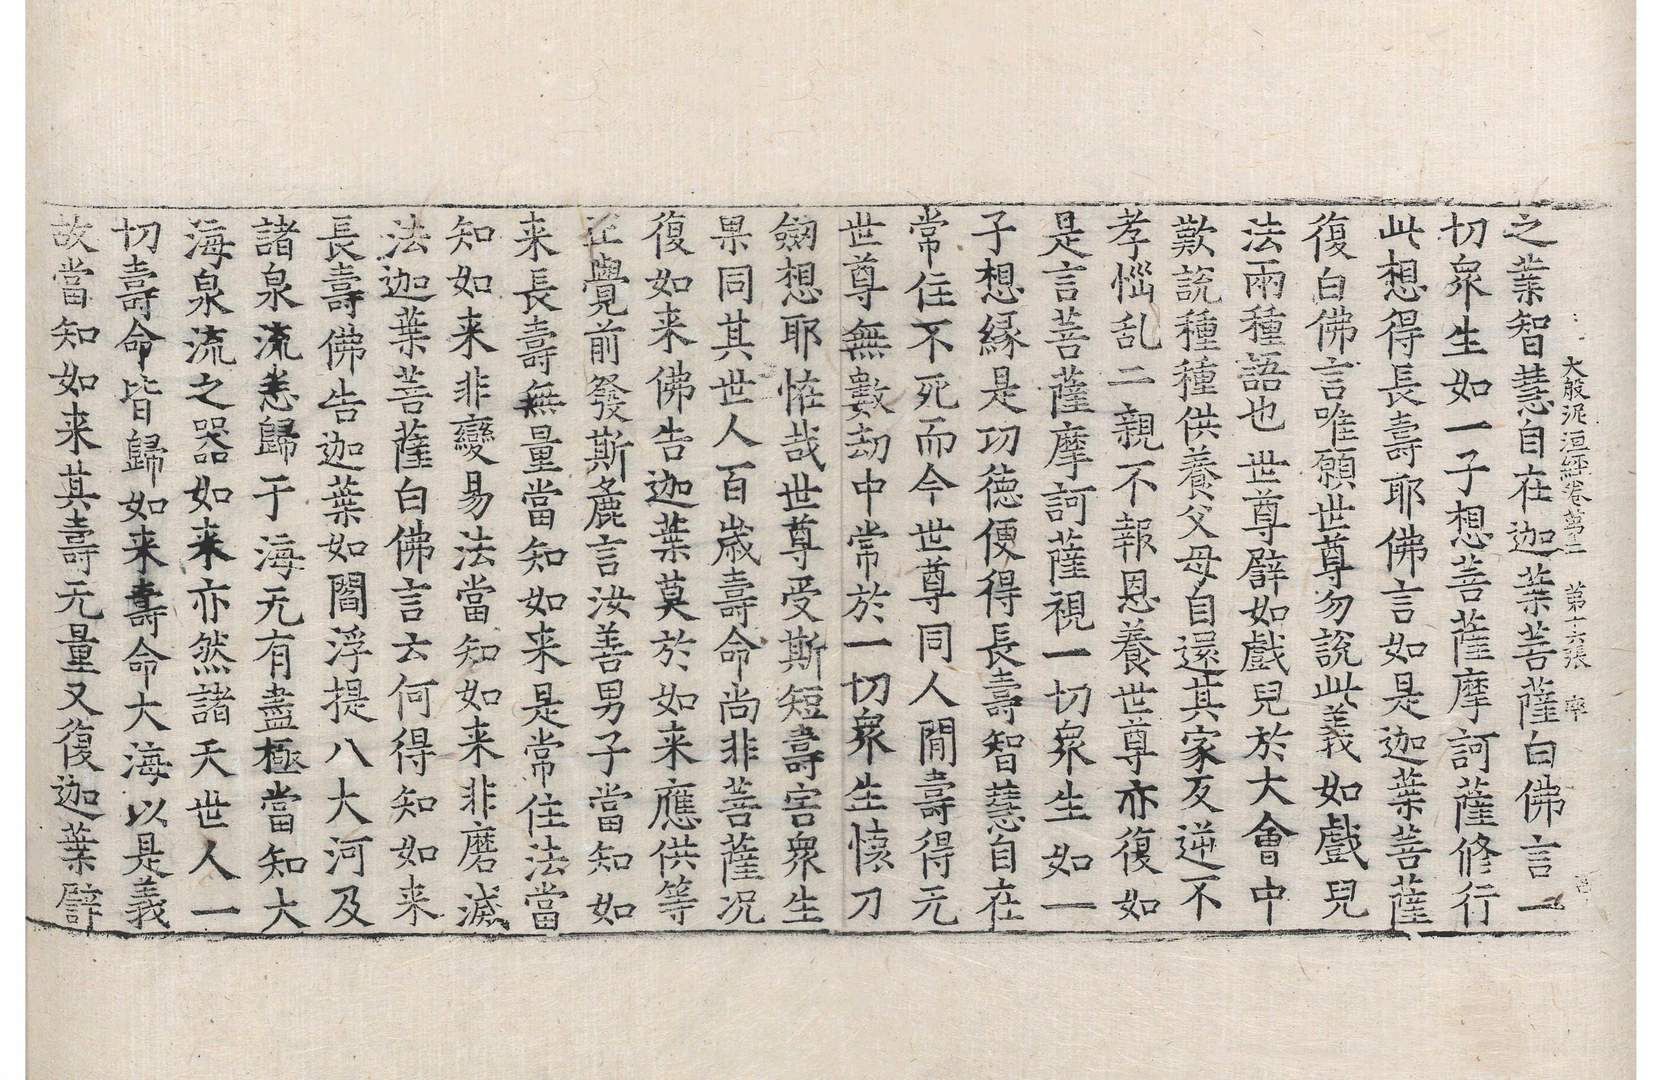 大般泥洹經卷第二 第十六張 率
之業智慧自在迦葉菩薩白佛言一
切衆生如一子想菩薩摩訶薩修行
此想得長壽耶佛言如是迦葉菩薩
復白佛言唯願世尊勿說此義如戲兒
法兩種語也世尊譬如戲兒於大會中
歎說種種供養父母自還其家反逆不
孝惱乱二親不報恩養世尊亦復如
是言菩薩摩訶薩視一切衆生如一
子想緣是功德便得長壽智慧自在
常住不死而今世尊同人閒壽得无
世尊無數劫中常於一切衆生懐刀
劒想耶恠哉世尊受斯短壽害衆生
果同其世人百歲壽命尚非菩薩况
復如来佛告迦葉莫於如来應供等
正覺前發斯麁言汝善男子當知如
来長壽無量當知如来是常住法當
知如来非變易法當知如来非磨滅
法迦葉菩薩白佛言云何得知如来
長壽佛告迦葉如閻浮提八大河及
諸泉流悉歸于海无有盡極當知大
海泉流之器如来亦然諸天世人一
切壽命皆歸如来壽命大海以是義
故當知如来其壽无量又復迦葉譬